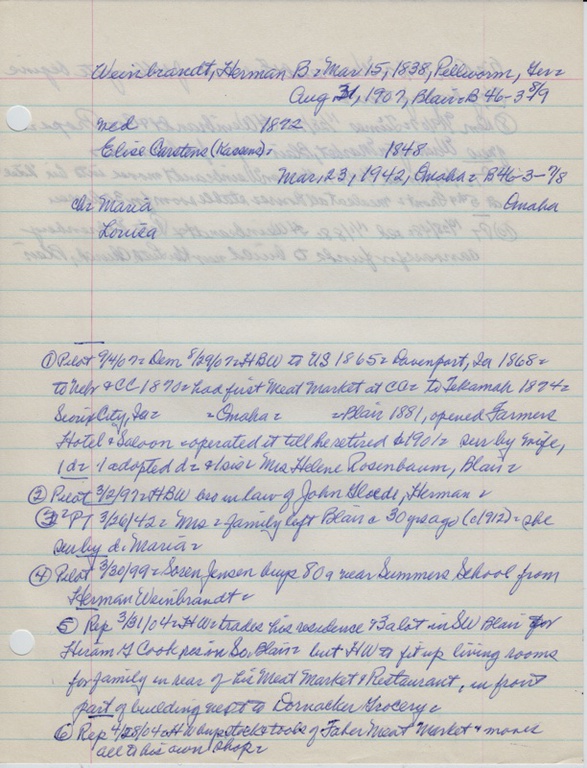 Weinbrandt, Herman B = Mar 15, 1838, Pellworm, Ger =
Aug 31, 1907, Blair = B 46-3 8/9
med 1872
Elise Carstens (Kassens) = 1848
Mar, 23, 1942, Omaha = B46-3-7/8
ch = Maria Omaha
Louisa
① Pilot 9/4/07 = Dem 8/29/07 = HBW to US 1865 = Davenport, Ia 1868 =
to Nebr & CC 1870 = had first Meat Market at CC = to Tekamah 1874 =
Sioux City, Ia = = Omaha = = Blair 1881, opened Farmers
Hotel & Saloon = operated it till he retired 1901 = sur by wife,
1 d = 1 adopted d = & 1 sis = Mrs Helene Rosenbaum, Blair =
② Pilot 3/2/97 = HBW bro in law of John Gloede, Herman =
③ PT 3/26/42 = Mrs = family left Blair c 30 yrs ago (c1912) = she
sur by d. Maria =
④ Pilot 3/30/99 = Soren Jensen buys 80 a near Summers School from
Herman Weinbrandt =
⑤ Rep 3/31/04 = HW = trades his residence & 3 a lot in SW Blair for
Hiram G Cook res in So. Blair = but HW to fit up living rooms
for family in rear of his Meat Market & Restaurant, in front
part of building next to Dornacker Grocery =
⑥ Rep 4/28/04 = HW buys stock & tools of Faber Meat Market & moves
all to his own shop =